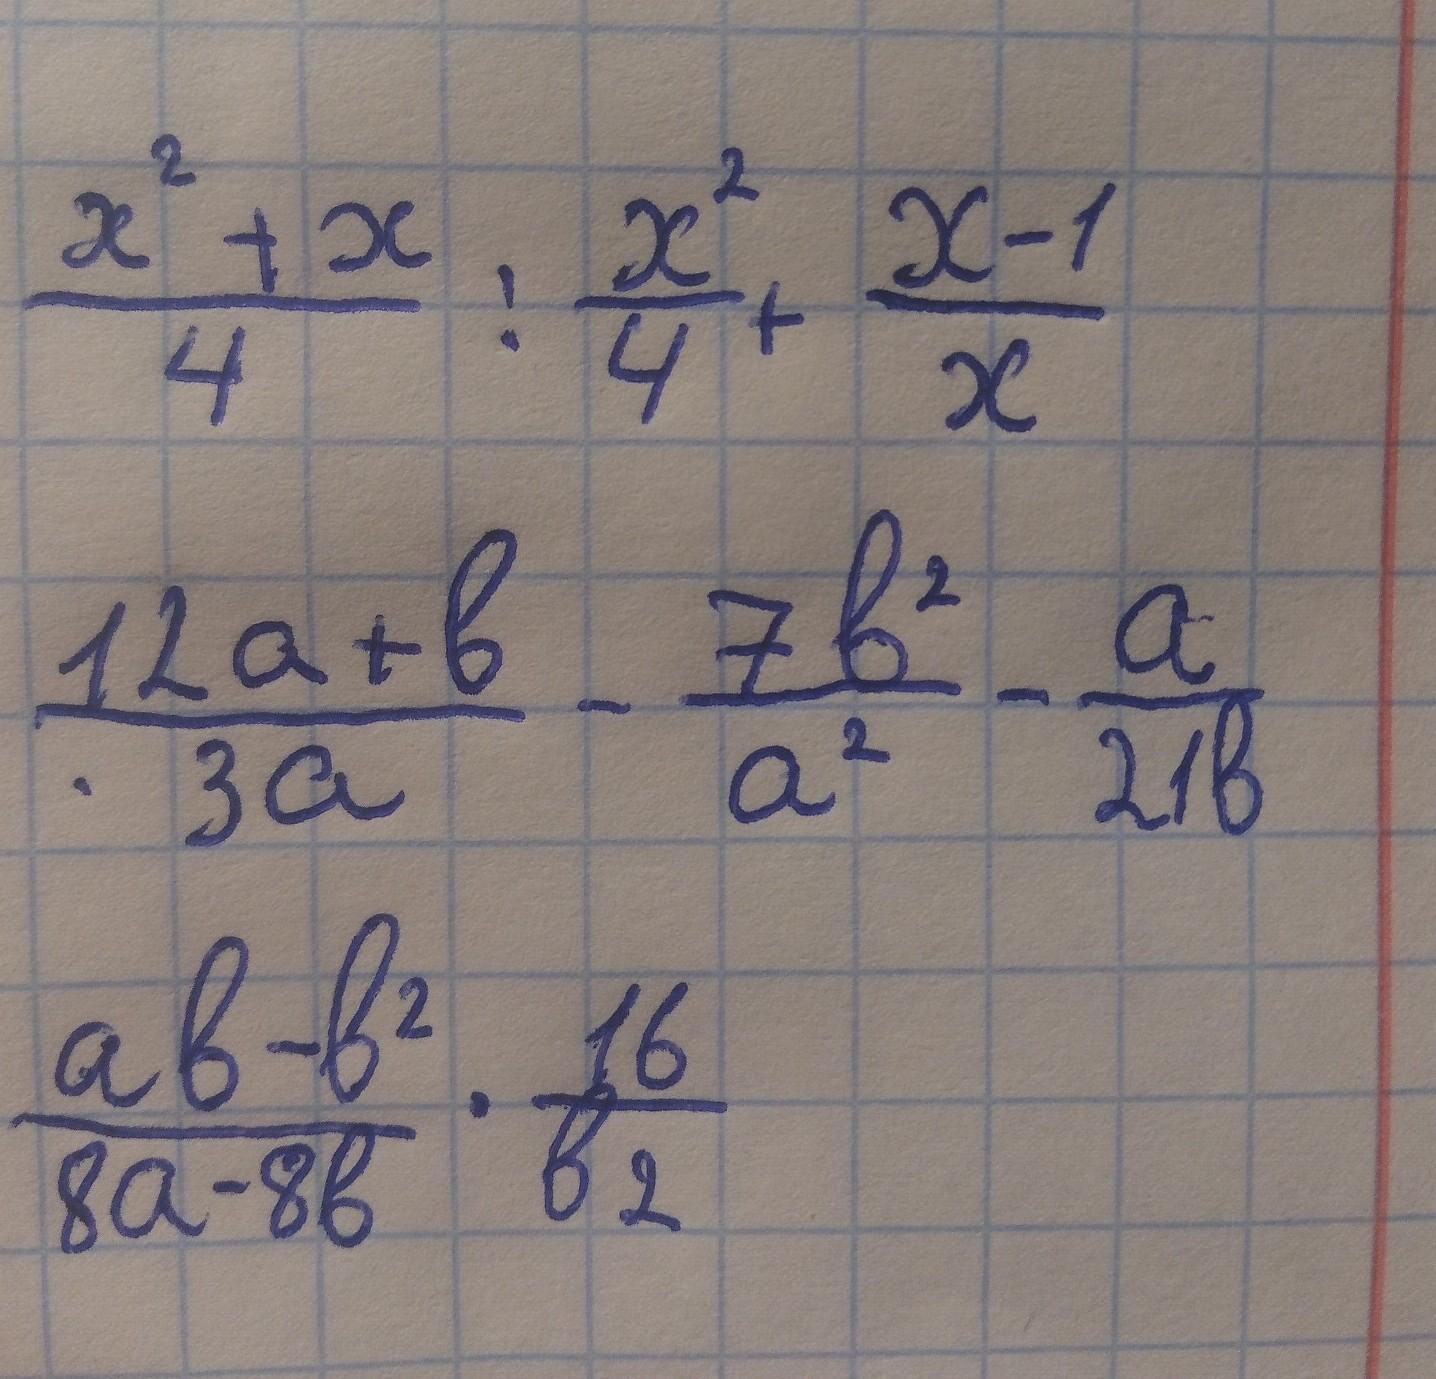 (x² + x)/4 : x²/4 + (x-1)/x
(12a+b)/(3a) - 7b²/a² - a/(21b)
(ab-b²)/(8a-8b) · 16/(b2)